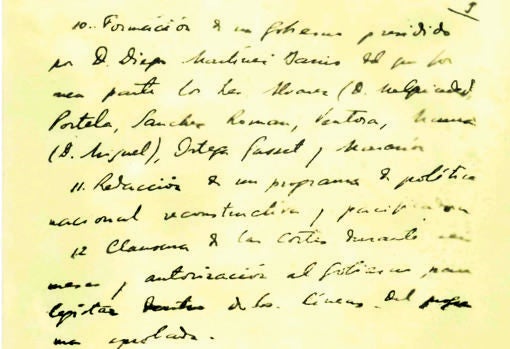 3
10. Formación de un gobierno presidido
por D. Diego Martínez Barrio del que for
men parte los Sres Alvarez (D. Melquiades),
Portela, Sanchez Roman, Ventosa, Maura
(D. Miguel), Ortega Gasset y Marañón
11. Redacción de un programa de política
nacional reconstructiva y pacificadora
12 Clausura de las Cortes durante
meses y autorización al Gobierno para
legislar dentro de las lineas del progra
ma aprobado.